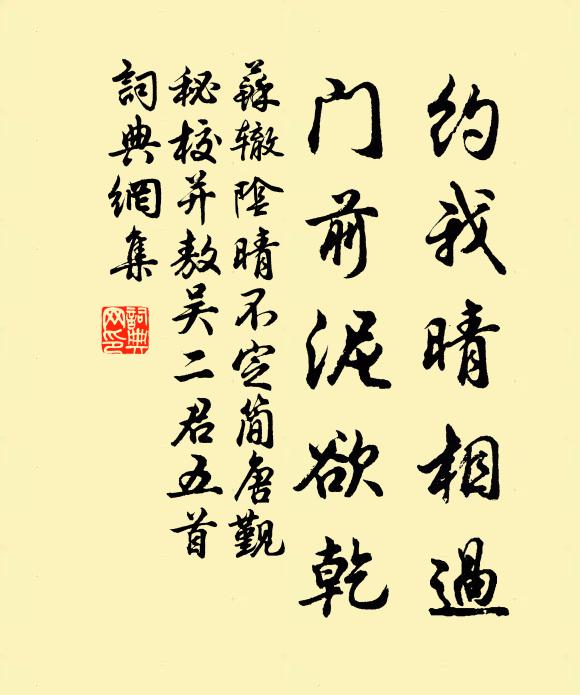 约我晴相過
门前泥欲乾
蘇辙陰晴不定简唐觐
秘校并敖吴二君五首
詞典網集
詞典网印